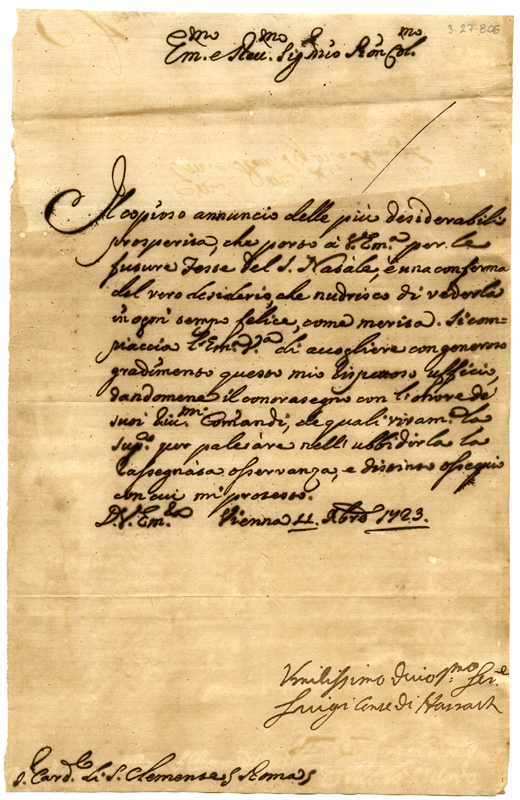 3-27-806
Em.mo e Rev.mo Sig.r mio Pron Col.mo
Il copioso annuncio delle più desiderabili
prosperità, che porto à V. Em.a per le
future Feste del S. Natale, è una conferma
del vero desiderio, che nudrisco di vederla
in ogni tempo felice, come merita. Si com=
piaccia l'Em. V.a di accogliere con generoso
gradimento questo mio rispettoso ufficio,
dandomene il contrasegno con l'onore de
suoi Comandi, de quali vivam.te la
sup.co per palesare nell' ubbidirla la
rassegnata osservanza, e distinto ossequio
con cui mi protesto.
D. V. Em.za Vienna 11. Xbre 1723.
Umilissimo Divot.mo Ser.e
Luigi Conte di Harrach
S.r Card.le di S. Clemente / Roma /